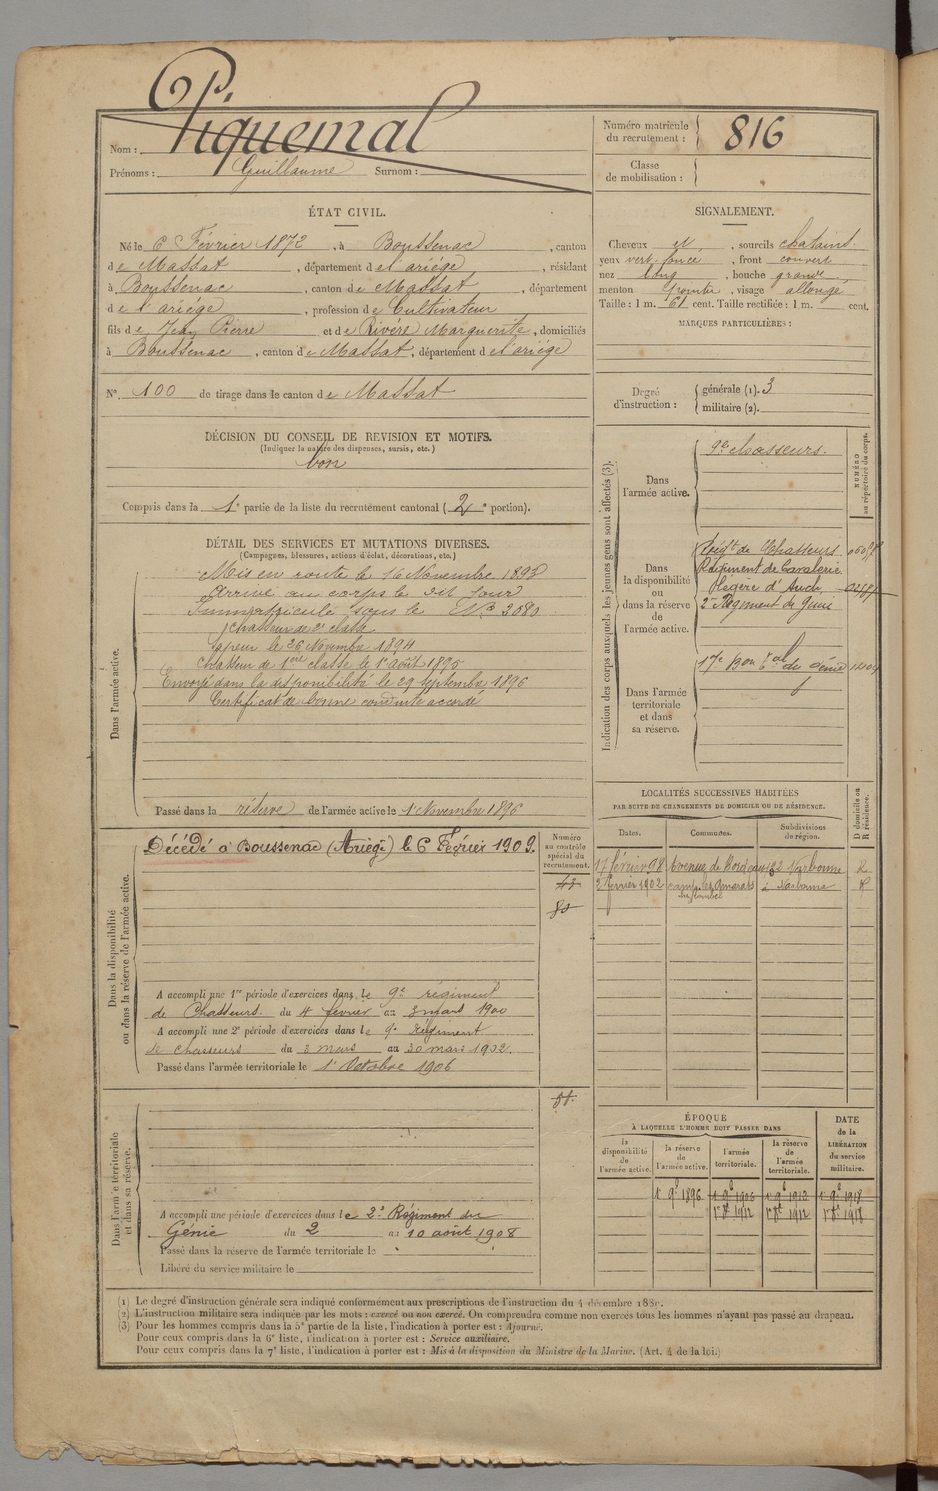 Nom : Piquemal
Prénoms : Guillaume Surnom :
Numéro matricule du recrutement : 816
Classe de mobilisation :
ÉTAT CIVIL.
Né le 6 Février 1872, à Boussenac, canton
de Massat, département de l'ariége, résidant
à Boussenac, canton de Massat, département
de l'ariége, profession de Cultivateur
fils de Jean Pierre et de Rivere Marguerite, domiciliés
à Boussenac, canton de Massat, département de l'ariége
N°. 100 de tirage dans le canton de Massat
DÉCISION DU CONSEIL DE REVISION ET MOTIFS.
(Indiquer la nature des dispenses, sursis, etc.)
bon
Compris dans la 1e partie de la liste du recrutement cantonal (2e portion).
SIGNALEMENT.
Cheveux et, sourcils chatains
yeux vert foncé, front couvert
nez long, bouche grande
menton pointu, visage allongé
Taille : 1 m. 61 cent. Taille rectifiée : 1 m. cent.
MARQUES PARTICULIÈRES :
Degré d'instruction : générale (1). 3
militaire (2).
DÉTAIL DES SERVICES ET MUTATIONS DIVERSES.
(Campagnes, blessures, actions d'éclat, décorations, etc.)
Dans l'armée active.
Mis en route le 16 Novembre 1893
Arrivé au corps le dit jour
Immatriculé sous le N° 3080
Chasseur de 2e classe
Sapeur le 26 Novembre 1894
Chasseur de 1ere classe le 1er août 1895
Envoyé dans la disponibilité le 29 septembre 1896
Certificat de bonne conduite accordé
Passé dans la réserve de l'armée active le 1er Novembre 1896
Indication des corps auxquels les jeunes gens sont affectés (3).
NUMÉRO au répertoire du corps.
Dans l'armée active.
9e chasseurs.
Dans la disponibilité ou dans la réserve de l'armée active.
Régt de Chasseurs
Régiment de Cavalerie
légère d'Auch
2e Régiment du Génie
Dans l'armée territoriale et dans sa réserve.
17e Bon Tal du Génie
LOCALITÉS SUCCESSIVES HABITÉES
PAR SUITE DE CHANGEMENTS DE DOMICILE OU DE RÉSIDENCE.
Dates. Communes. Subdivisions de région. D domicile ou R résidence.
17 février 98 Avenue de Bordeaux 62 Narbonne R
2 février 1902 à Narbonne R
Dans la disponibilité ou dans la réserve de l'armée active.
Numéro au contrôle spécial du recrutement.
Décédé à Boussenac (Ariège) le 6 Février 1909.
43
80
A accompli une 1re période d'exercices dans le 9e régiment
de Chasseurs du 4 février au 3 mars 1900
A accompli une 2e période d'exercices dans le 9e Régiment
de chasseurs du 3 mars au 30 mars 1902.
Passé dans l'armée territoriale le 1er Octobre 1906
Dans l'armée territoriale et dans sa réserve.
A accompli une période d'exercices dans le 2e Régiment du
Génie du 2 au 10 août 1908
Passé dans la réserve de l'armée territoriale le
Libéré du service militaire le
ÉPOQUE
À LAQUELLE L'HOMME DOIT PASSER DANS
la disponibilité de l'armée active. la réserve de l'armée active. l'armée territoriale. la réserve de l'armée territoriale. DATE de la LIBÉRATION du service militaire.
1er 9e 1896 1er 9e 1906 1er 9e 1912 1er 9e 1918
(1) Le degré d'instruction générale sera indiqué conformément aux prescriptions de l'instruction du 4 décembre 1889.
(2) L'instruction militaire sera indiquée par les mots : exercé ou non exercé. On comprendra comme non exercés tous les hommes n'ayant pas passé au drapeau.
(3) Pour les hommes compris dans la 5e partie de la liste, l'indication à porter est : Ajourné.
Pour ceux compris dans la 6e liste, l'indication à porter est : Service auxiliaire.
Pour ceux compris dans la 7e liste, l'indication à porter est : Mis à la disposition du Ministre de la Marine. (Art. 4 de la loi.)